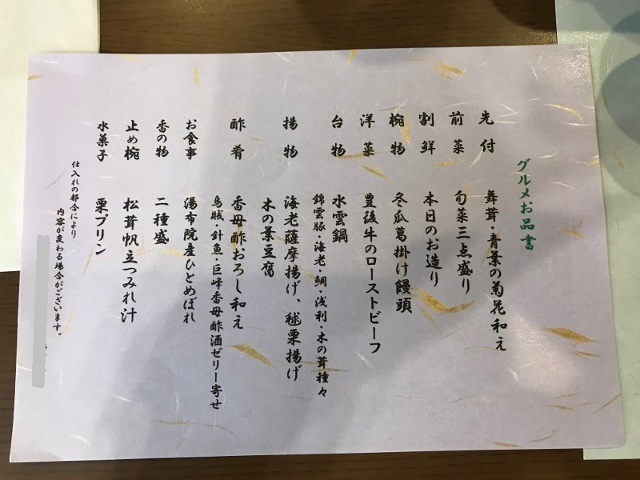 グルメお品書
先付　舞茸・青菜の菊花和え
前菜　旬菜三点盛り
割鮮　本日のお造り
椀物　冬瓜葛掛け饅頭
洋菜　豊後牛のローストビーフ
台物　水雲鍋
錦雲豚・海老・鯛・浅利・木の茸種々
揚物　海老薩摩揚げ、毬栗揚げ
木の葉豆腐
酢肴　香母酢おろし和え
烏賊・針魚・巨峰香母酢酒ゼリー寄せ
お食事　湯布院産ひとめぼれ
香の物　二種盛
止め椀　松茸帆立つみれ汁
水菓子　栗プリン
仕入れの都合により
内容が変わる場合がございます。